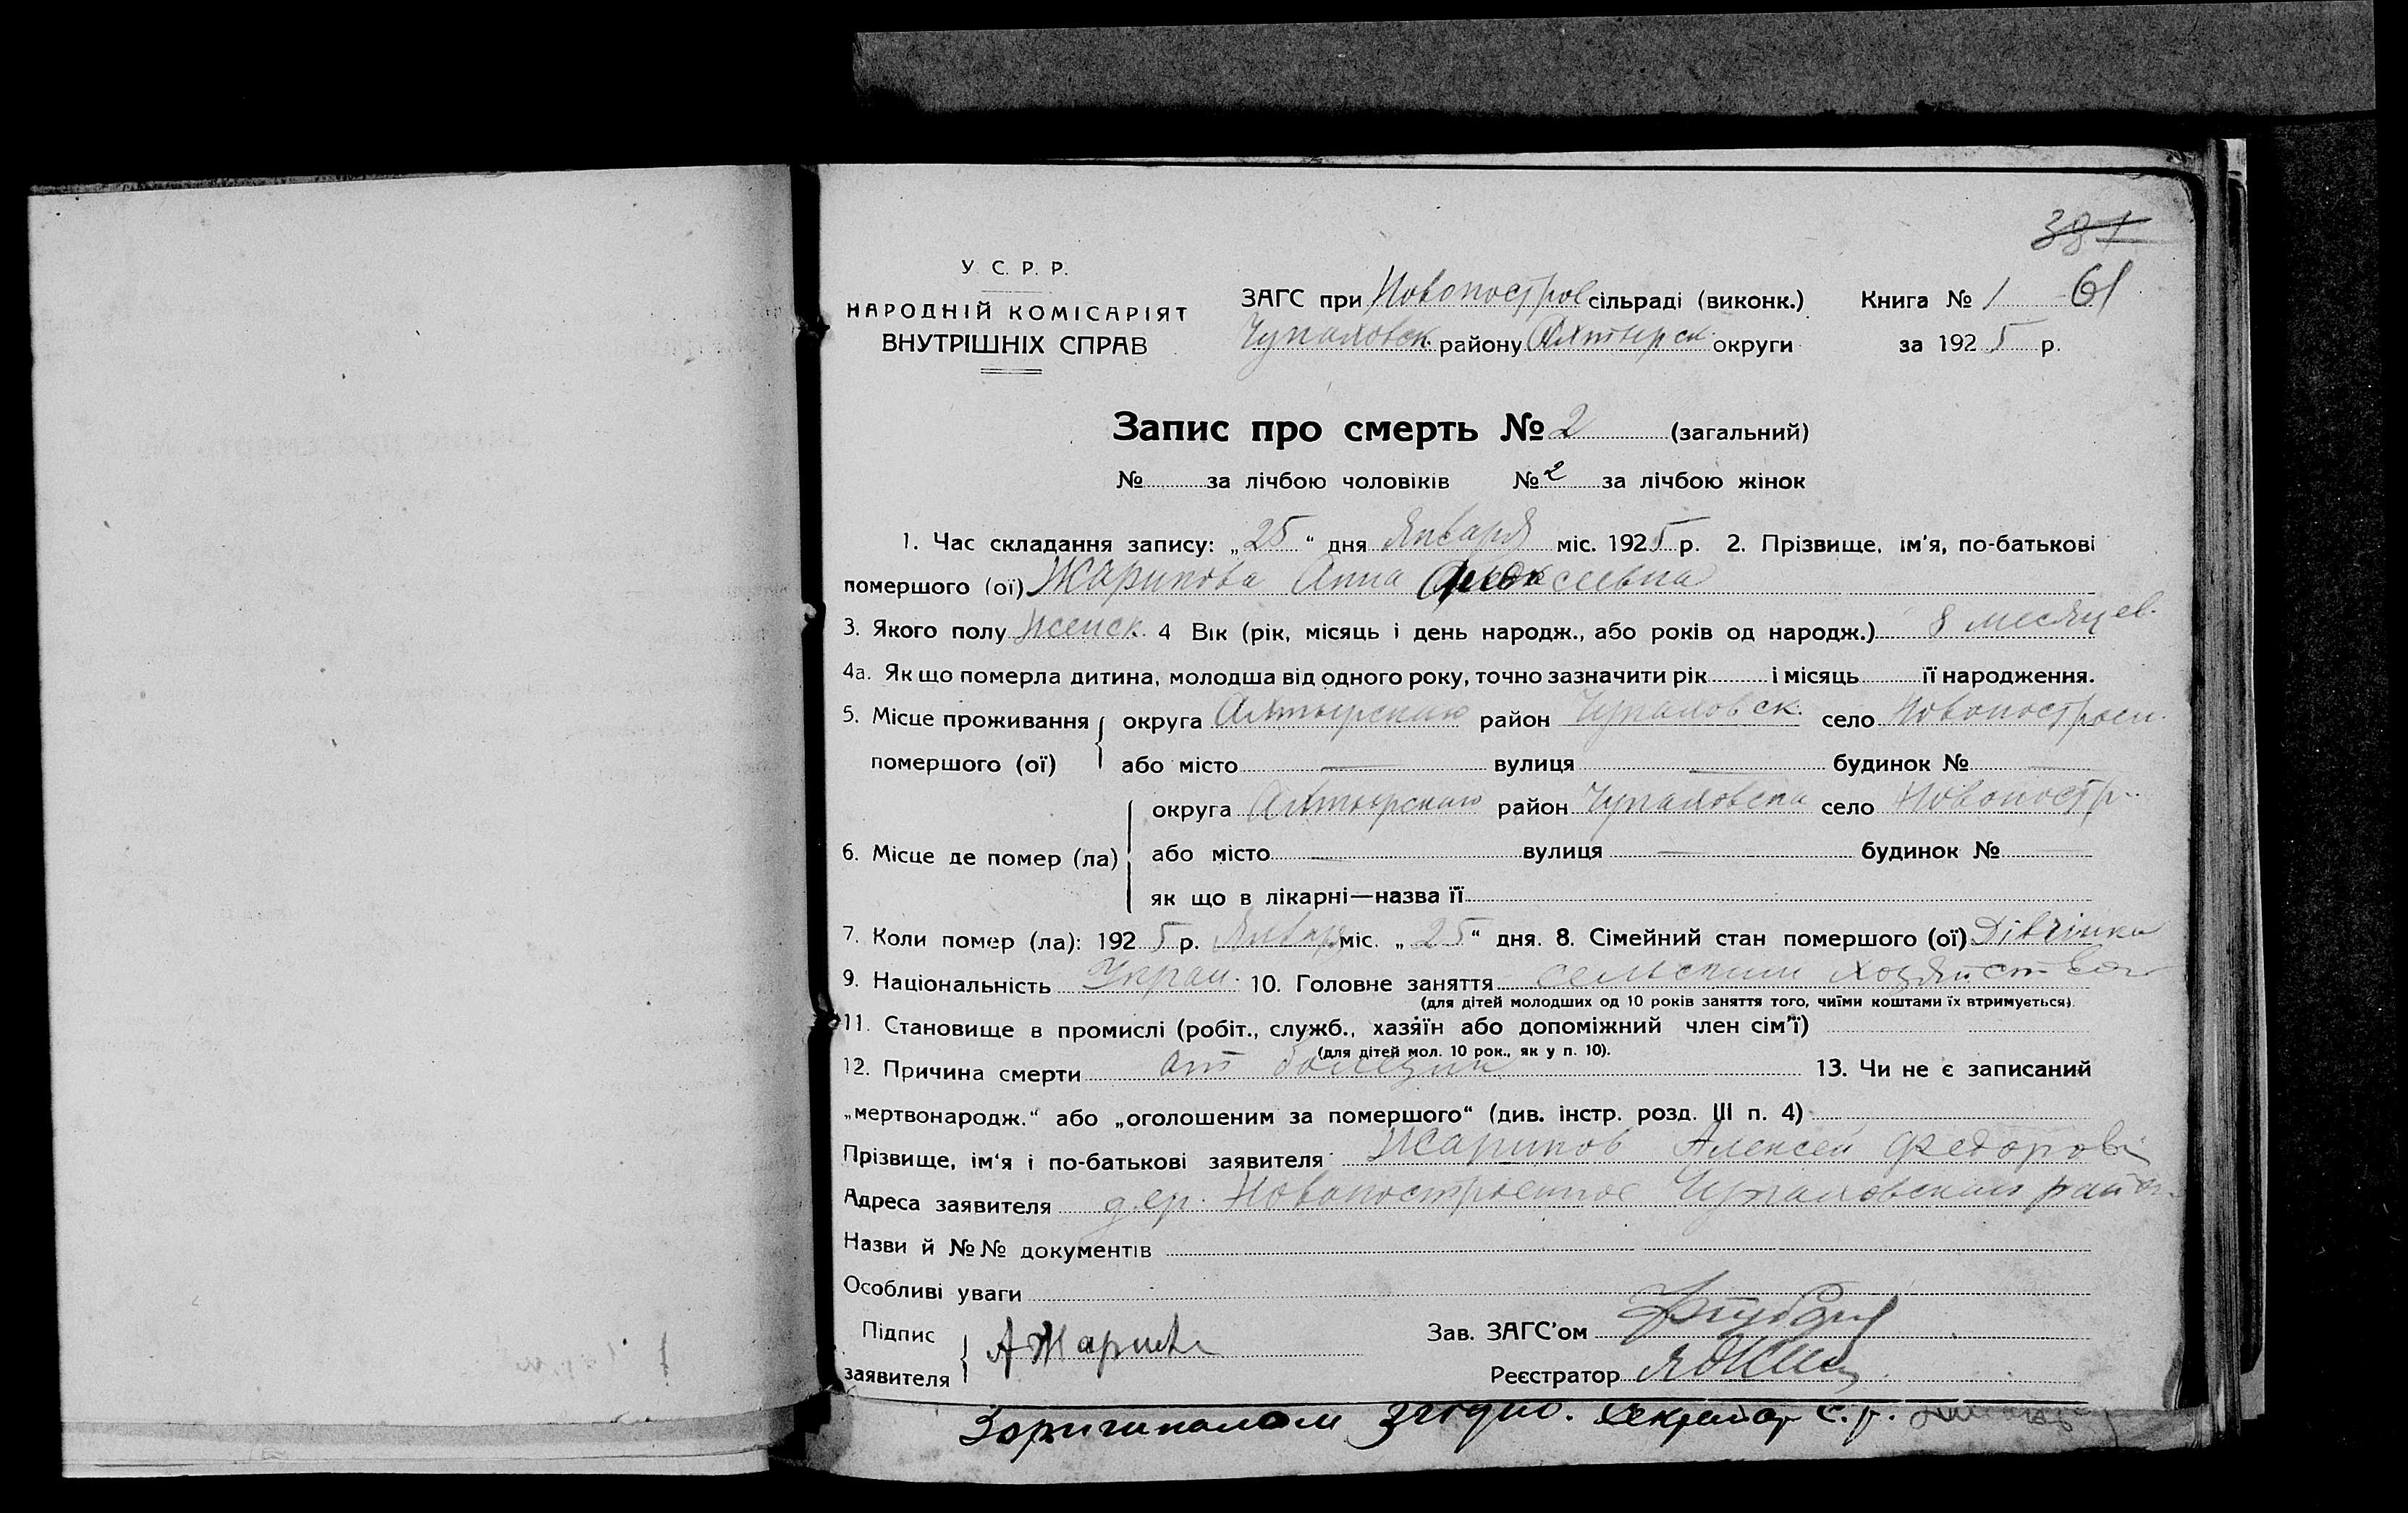 381
У. С. Р. Р.
НАРОДНІЙ КОМІСАРІЯТ
ВНУТРІШНІХ СПРАВ
ЗАГС при Новопострое сільраді (виконк.) Книга № 1 61
Чупаховск. району Ахтырск. округи за 1925 р.
Запис про смерть № 2 (загальний)
№ за лічбою чоловіків № 2 за лічбою жінок
1. Час складання запису: „25“ дня Января міс. 1925 р. 2. Прізвище, ім'я, по-батькові
помершого (ої) Жарикова Анна Алексеевна
3. Якого полу Женск. 4 Вік (рік, місяць і день народж., або років од народж.) 8 месяцев.
4а. Як що померла дитина, молодша від одного року, точно зазначити рік і місяць її народження.
5. Місце проживання округа Ахтырскаю район Чупаховск. село Новопостроен.
помершого (ої) або місто — вулиця — будинок № —
округа Ахтырскаю район Чупаховска село Новопостр..
6. Місце де помер (ла) або місто — вулиця — будинок № —
як що в лікарні—назва її
7. Коли помер (ла): 1925 р. Января міс. „25“ дня. 8. Сімейний стан помершого (ої) Дівчінка
9. Національність Украи. 10. Головне заняття сельским хозяйством
(для дітей молодших од 10 років заняття того, чиїми коштами їх втримується).
11. Становище в промислі (робіт., служб., хазяїн або допоміжний член сім'ї)
(для дітей мол. 10 рок., як у п. 10).
12. Причина смерти от болезни 13. Чи не є записаний
„мертвонародж.“ або „оголошеним за помершого“ (див. інстр. розд. III п. 4)
Прізвище, ім'я і по-батькові заявителя Жариков Алексей Федорови
Адреса заявителя дер. Новопостроенное Чупаховскаю район.
Назви й №№ документів
Особливі уваги
Підпис
заявителя А Жарико
Зав. ЗАГС'ом
Реєстратор
З оригиналом згідно. Секретар С. р.